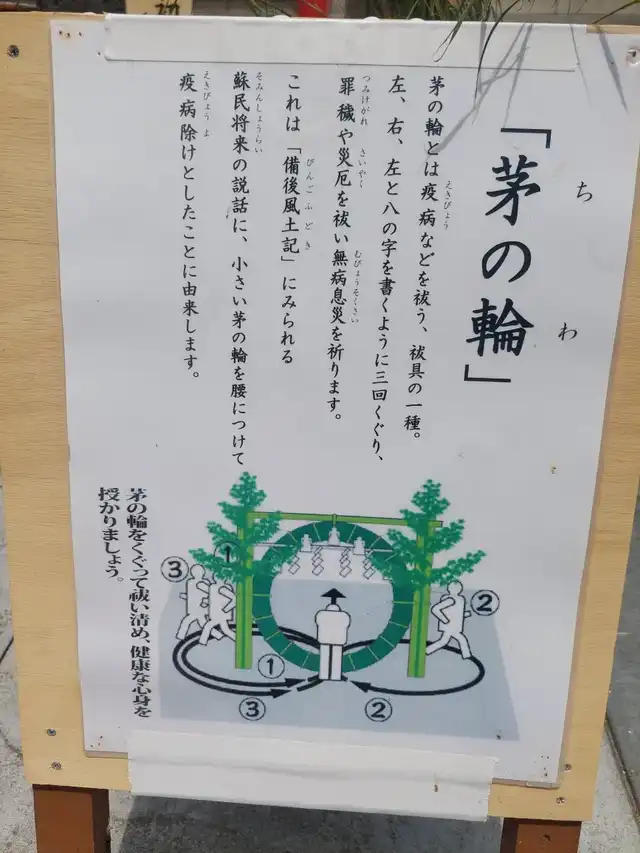 「茅の輪」
ち わ
茅の輪とは疫病などを祓う、祓具の一種。
えきびょう
左、右、左と八の字を書くように三回くぐり、
罪穢や災厄を祓い無病息災を祈ります。
つみけがれ さいやく むびょうそくさい
これは「備後風土記」にみられる
びんごふどき
蘇民将来の説話に、小さい茅の輪を腰につけて
そみんしょうらい
疫病除けとしたことに由来します。
えきびょうよ
①
③
②
①
③
②
茅の輪をくぐって祓い清め、健康な心身を
授かりましょう。